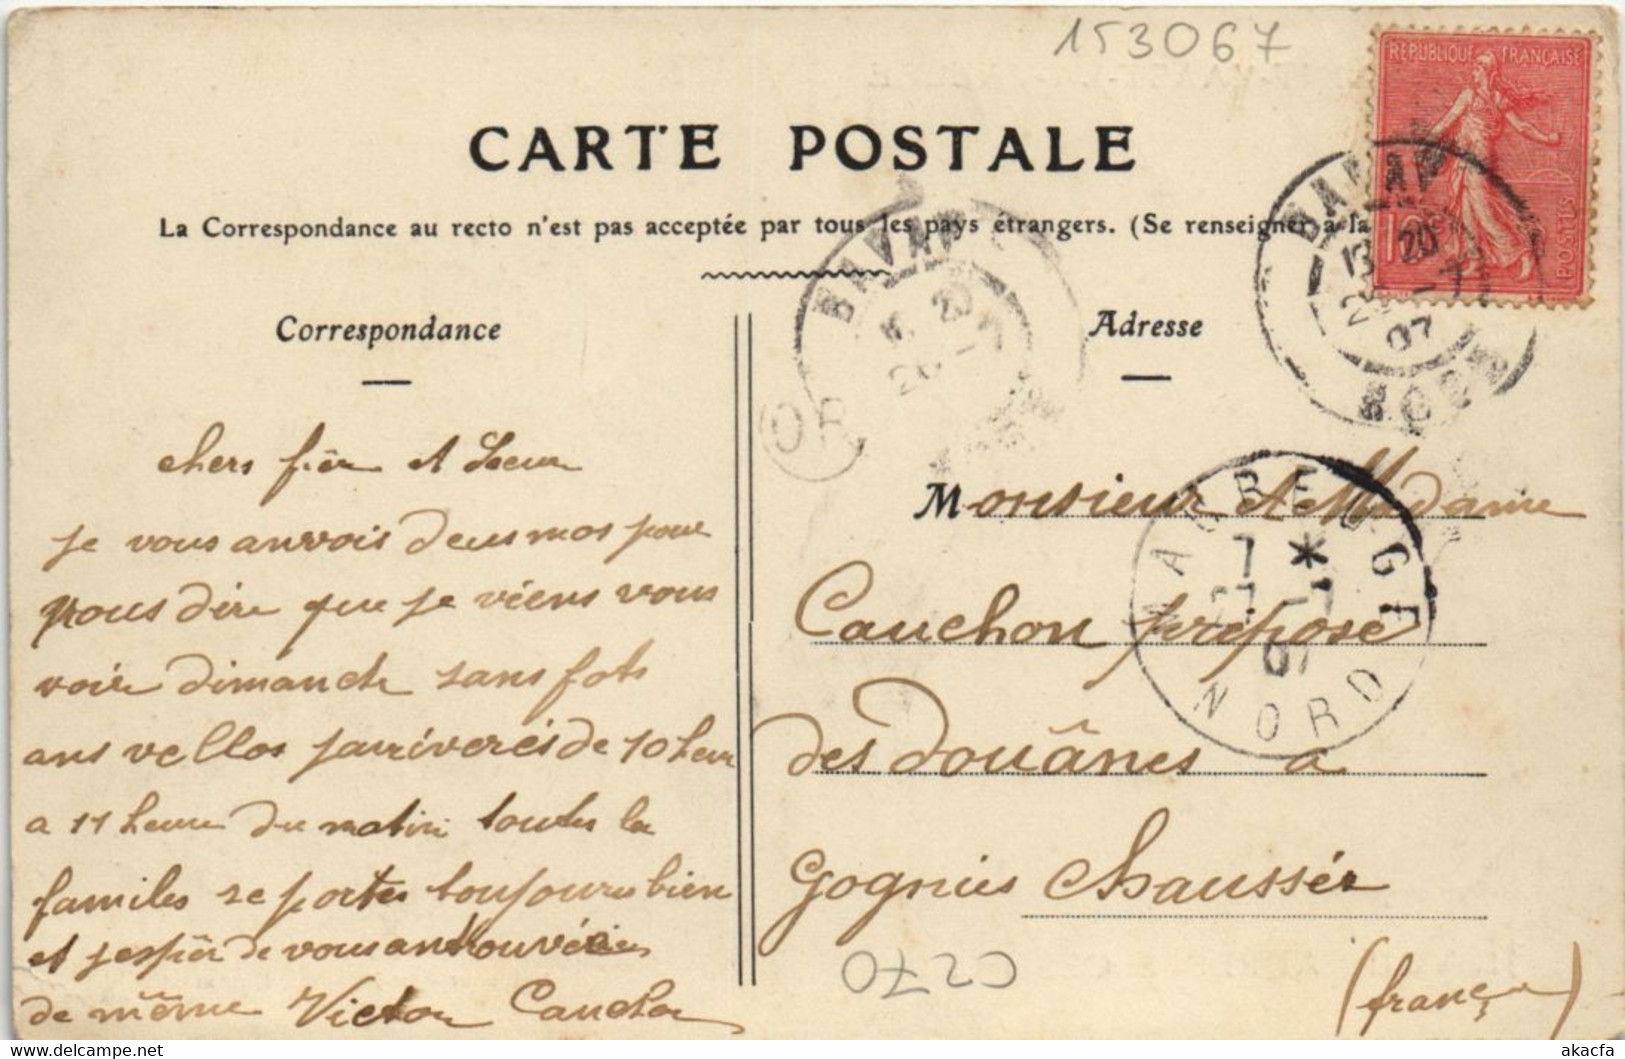 153067
RÉPUBLIQUE FRANÇAISE
POSTES
CARTE POSTALE
La Correspondance au recto n'est pas acceptée par tous les pays étrangers. (Se renseigner à la
BAVAY
13 20
07
NORD
BAVAY
20
26 -7
OR
Correspondance
Adresse
MAUBEUGE
7 *
27 -7
07
NORD
chers frèr et Soeur
je vous anvois deus mos pour
vous dire que je viens vous
voir dimanche sans fots
ans vellos jariverés de 10 heur
a 11 heure du matin toutes la
familes se portes toujours bien
et jespèr de vous antrouvér
de même Victor Cauchon
Monsieur et Madame
Cauchon prépose
des douânes a
Gognies Chaussér
(françe)
C270
akacfa